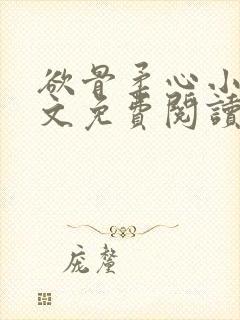 欲骨柔心小
文免費閱讀
庞釐